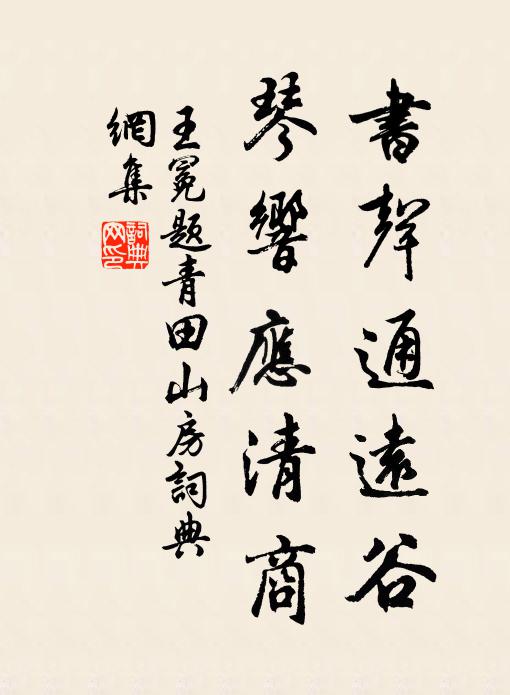 書聲通遠谷
琴響應清商
王冕題青田山房詞典
網集
詞典
网印